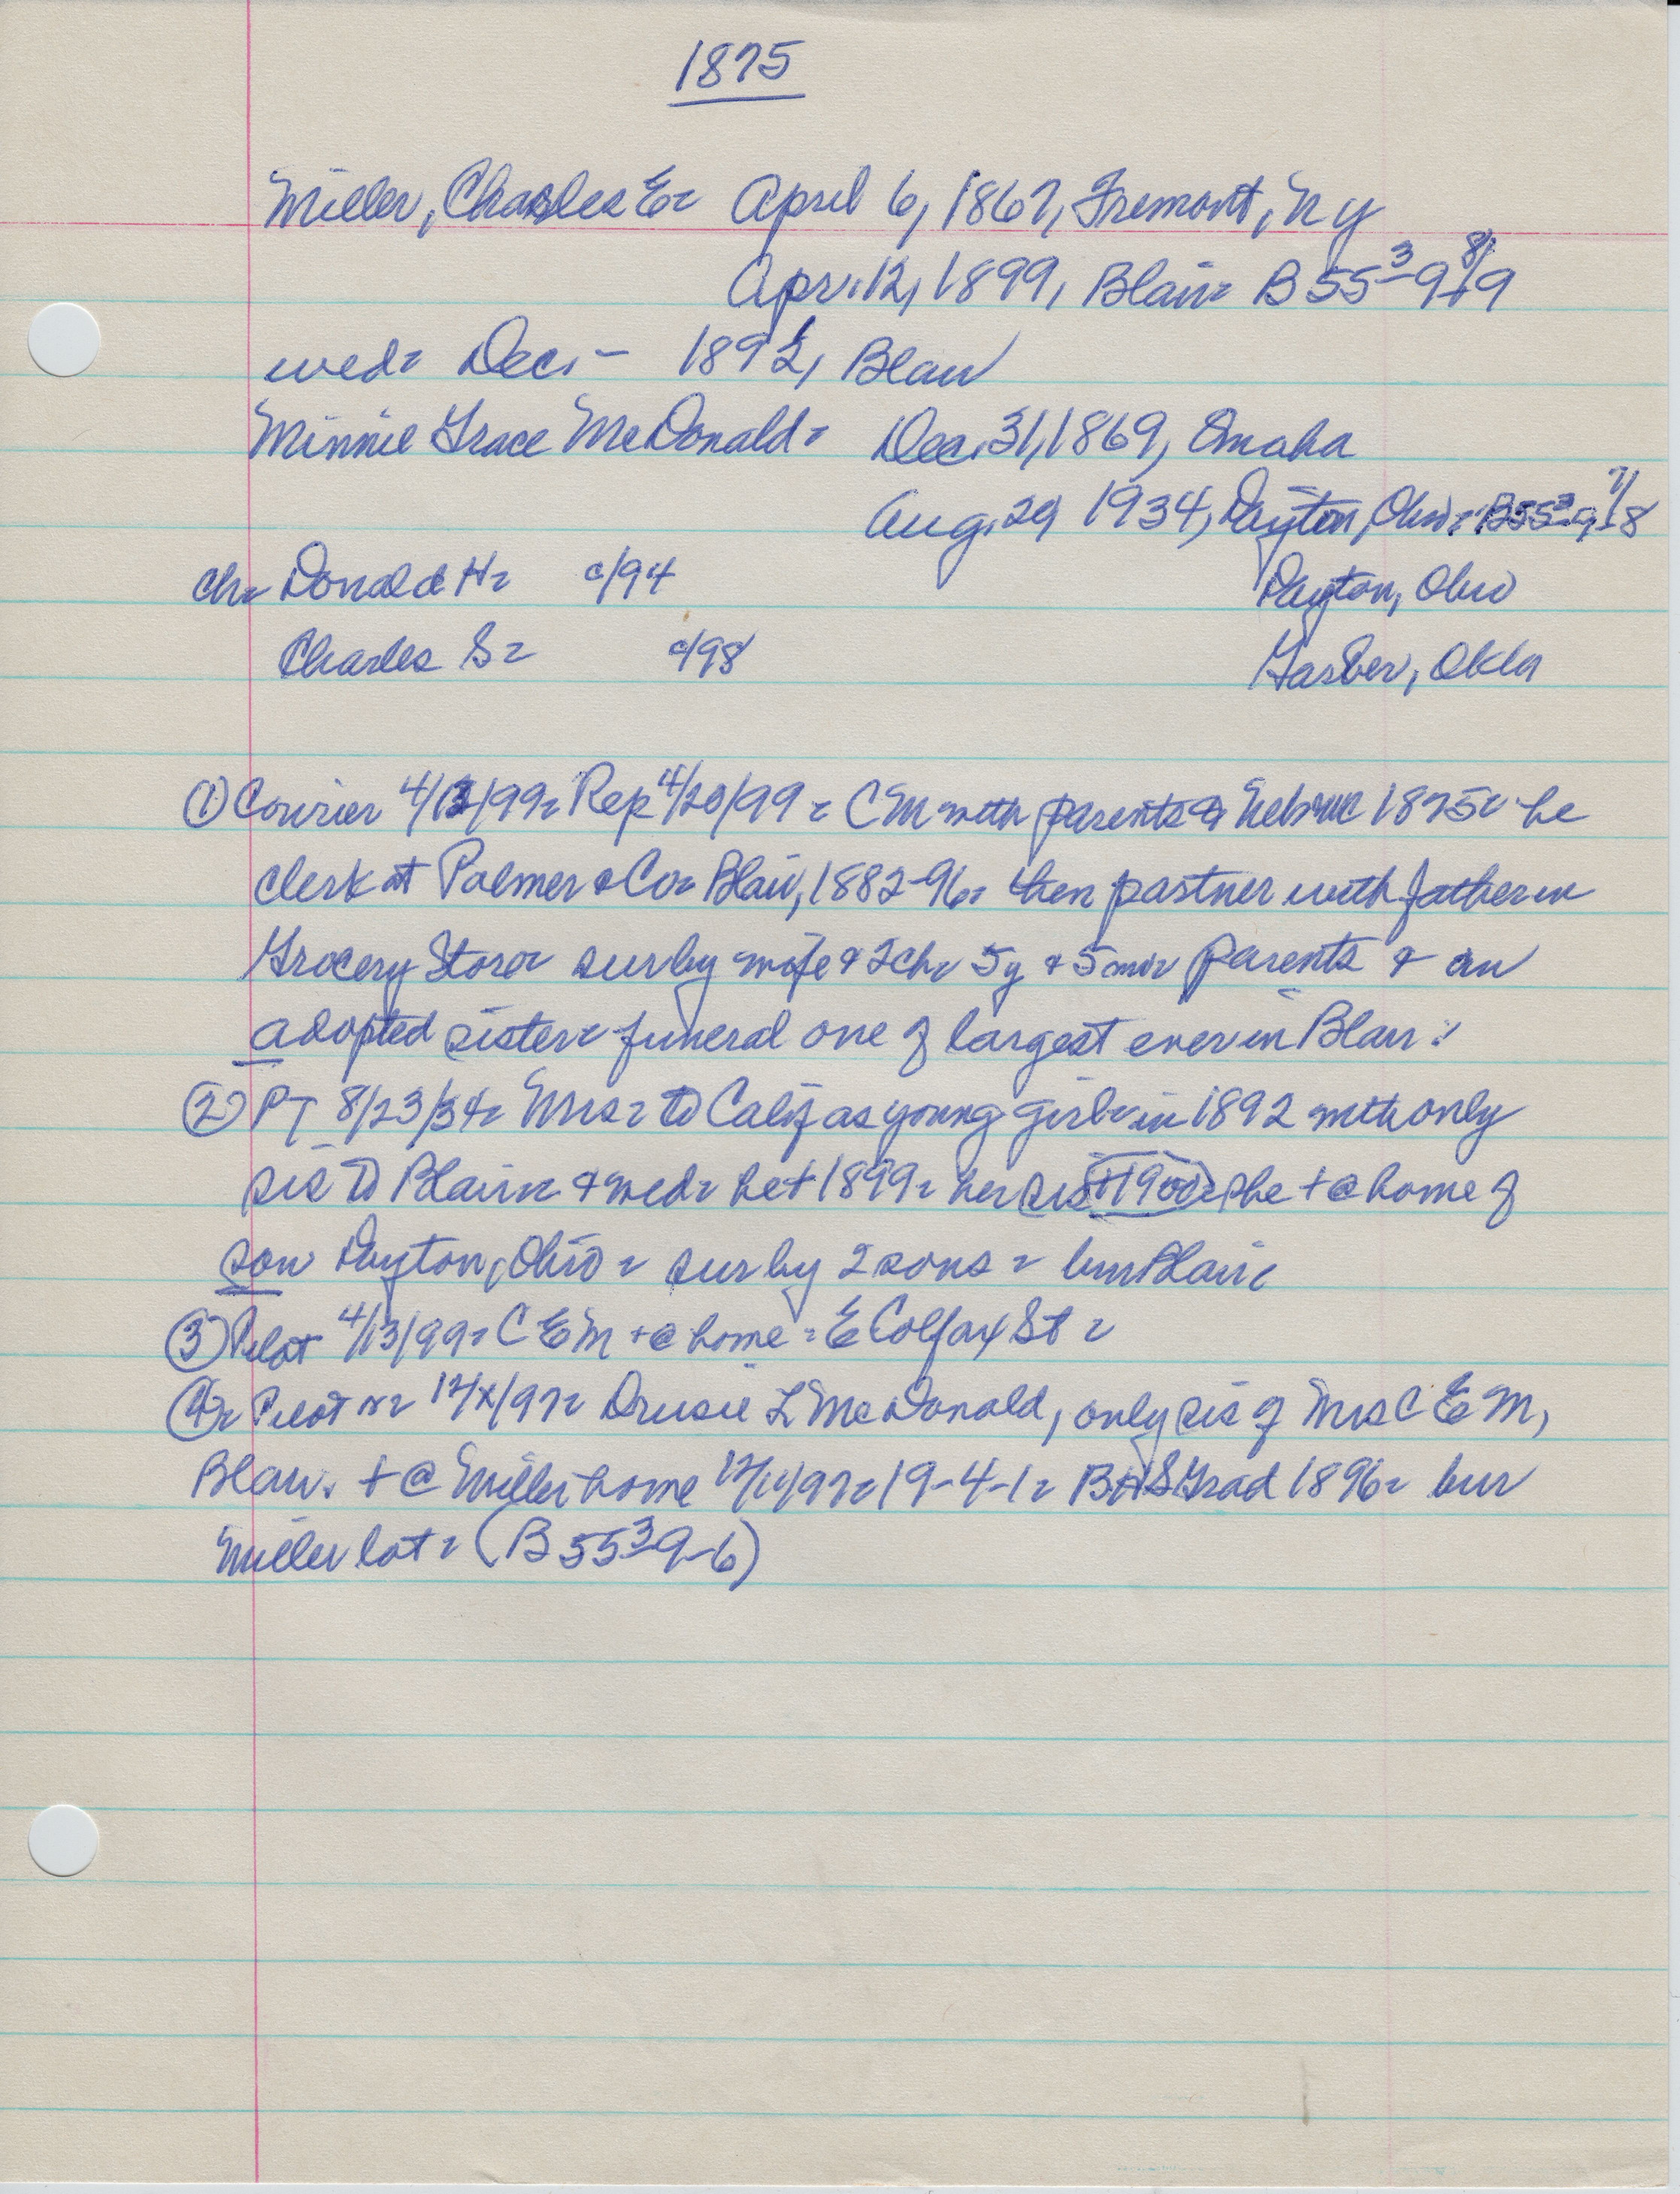 1875
Miller, Charles E= April 6, 1867, Fremont, Ny
Apr. 12, 1899, Blair= B 55³-9 8/9
wed= Dec. - 1892, Blair
Minnie Grace McDonald= Dec. 31, 1869, Omaha
Aug. 29 1934, Dayton, Ohio= B55³-9 7/8
ch= Donald H= c/94 Dayton, Ohio
Charles S= c/98 Garber, Okla
① Courier 4/13/99= Rep 4/20/99= CM with parents Nebr in 1875= he
clerk at Palmer & Co= Blair, 1882-96= then partner with father in
Grocery Store= sur by wife & 2ch= 5y & 5mo= Parents & an
adopted sister= funeral one of largest ever in Blair=
② PT 8/23/34= Mrs= to Calif as young girl= in 1892 with only
sis to Blair= & wed= he + 1899= her sis + 1900= she + @ home of
son Dayton, Ohio= sur by 2 sons= bur Blair=
③ Pilot 4/13/99= C E M + @ home= E Colfax St=
④= Pilot 12/ /97= Drusie L McDonald, only sis of Mrs C E M,
Blair. + @ Miller home 12/ /97= 19-4-1= BHS Grad 1896= bur
Miller lot= (B 55³ 9-6)